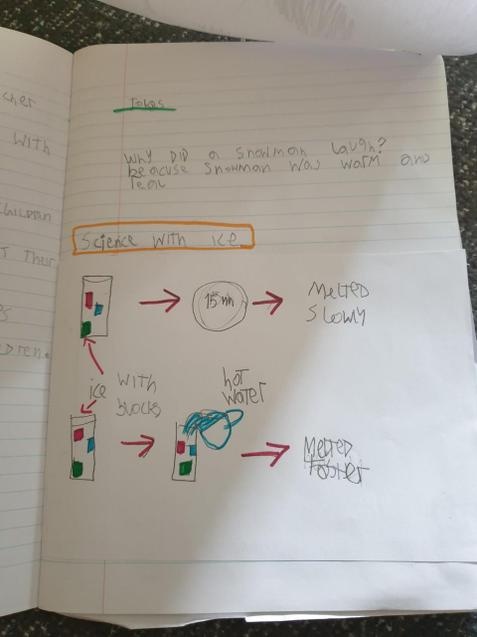 cher
with
children
t their
s
dren.
Jokes
Why DiD a snowman laugh?
beacuse snowman was warm and
real
Science with ice
15 min
MeLteD
slowly
ice with
blocks
hot
water
MeLteD
faster